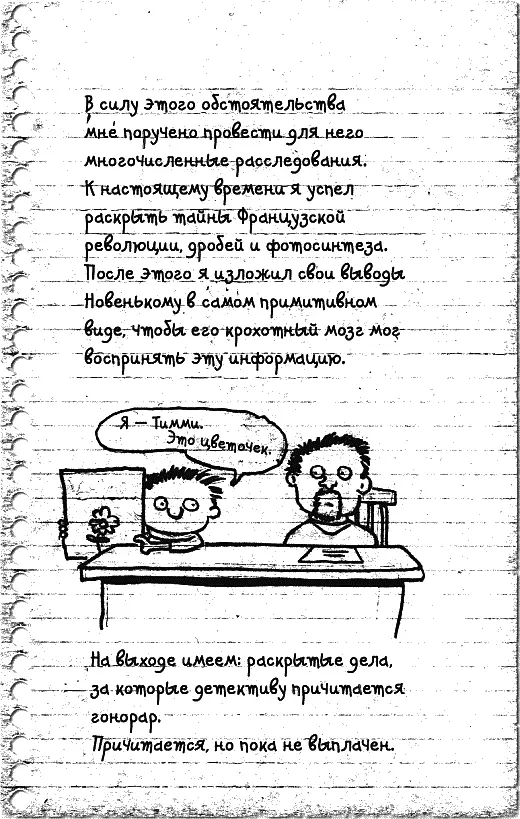 В силу этого обстоятельства
мне поручено провести для него
многочисленные расследования.
К настоящему времени я успел
раскрыть тайны Французской
революции, дробей и фотосинтеза.
После этого я изложил свои выводы
Новенькому в самом примитивном
виде, чтобы его крохотный мозг мог
воспринять эту информацию.
Я — Тимми.
Это цветочек.
На выходе имеем: раскрытые дела,
за которые детективу причитается
гонорар.
Причитается, но пока не выплачен.